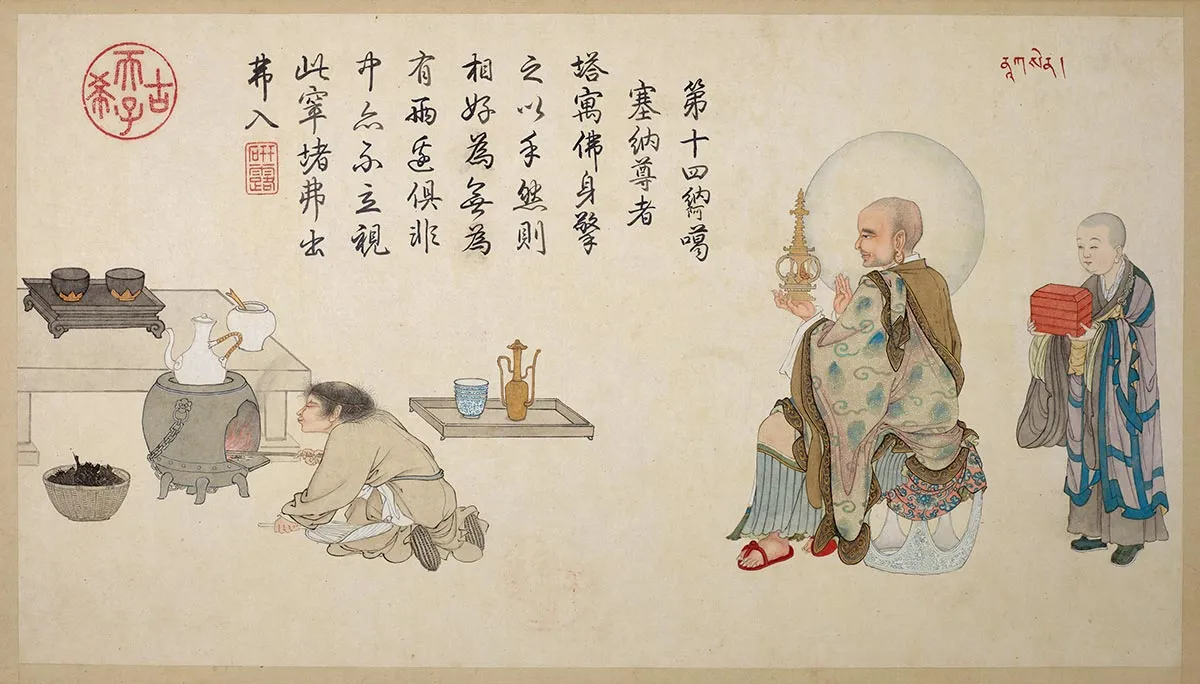 ནཱ་ག་སེ་ན།
第十四納阿噶
塞納尊者
塔寓佛身擎
之以手然則
相好為無為
有兩邊俱非
中亦不立視
此窣堵弗出
弗入
研露
古希天子